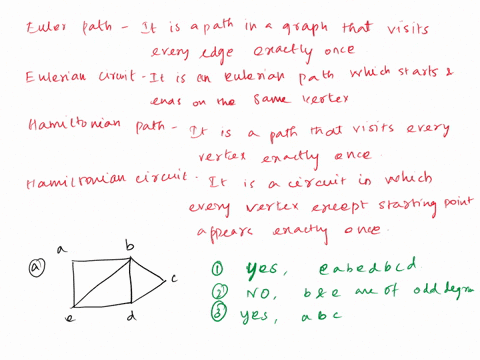 Euler path - It is a path in a graph that visits
every edge exactly once
Eulerian circuit - It is an eulerian path which starts &
ends on the same vertex
Hamiltonian path - It is a path that visits every
vertex exactly once.
Hamiltonian circuit - It is a circuit in which
every vertex except starting point
appears exactly once.
a b
ⓐ c
e d
① Yes, e a b e d b c d.
② NO, b & e are of odd degree
③ Yes, a b c